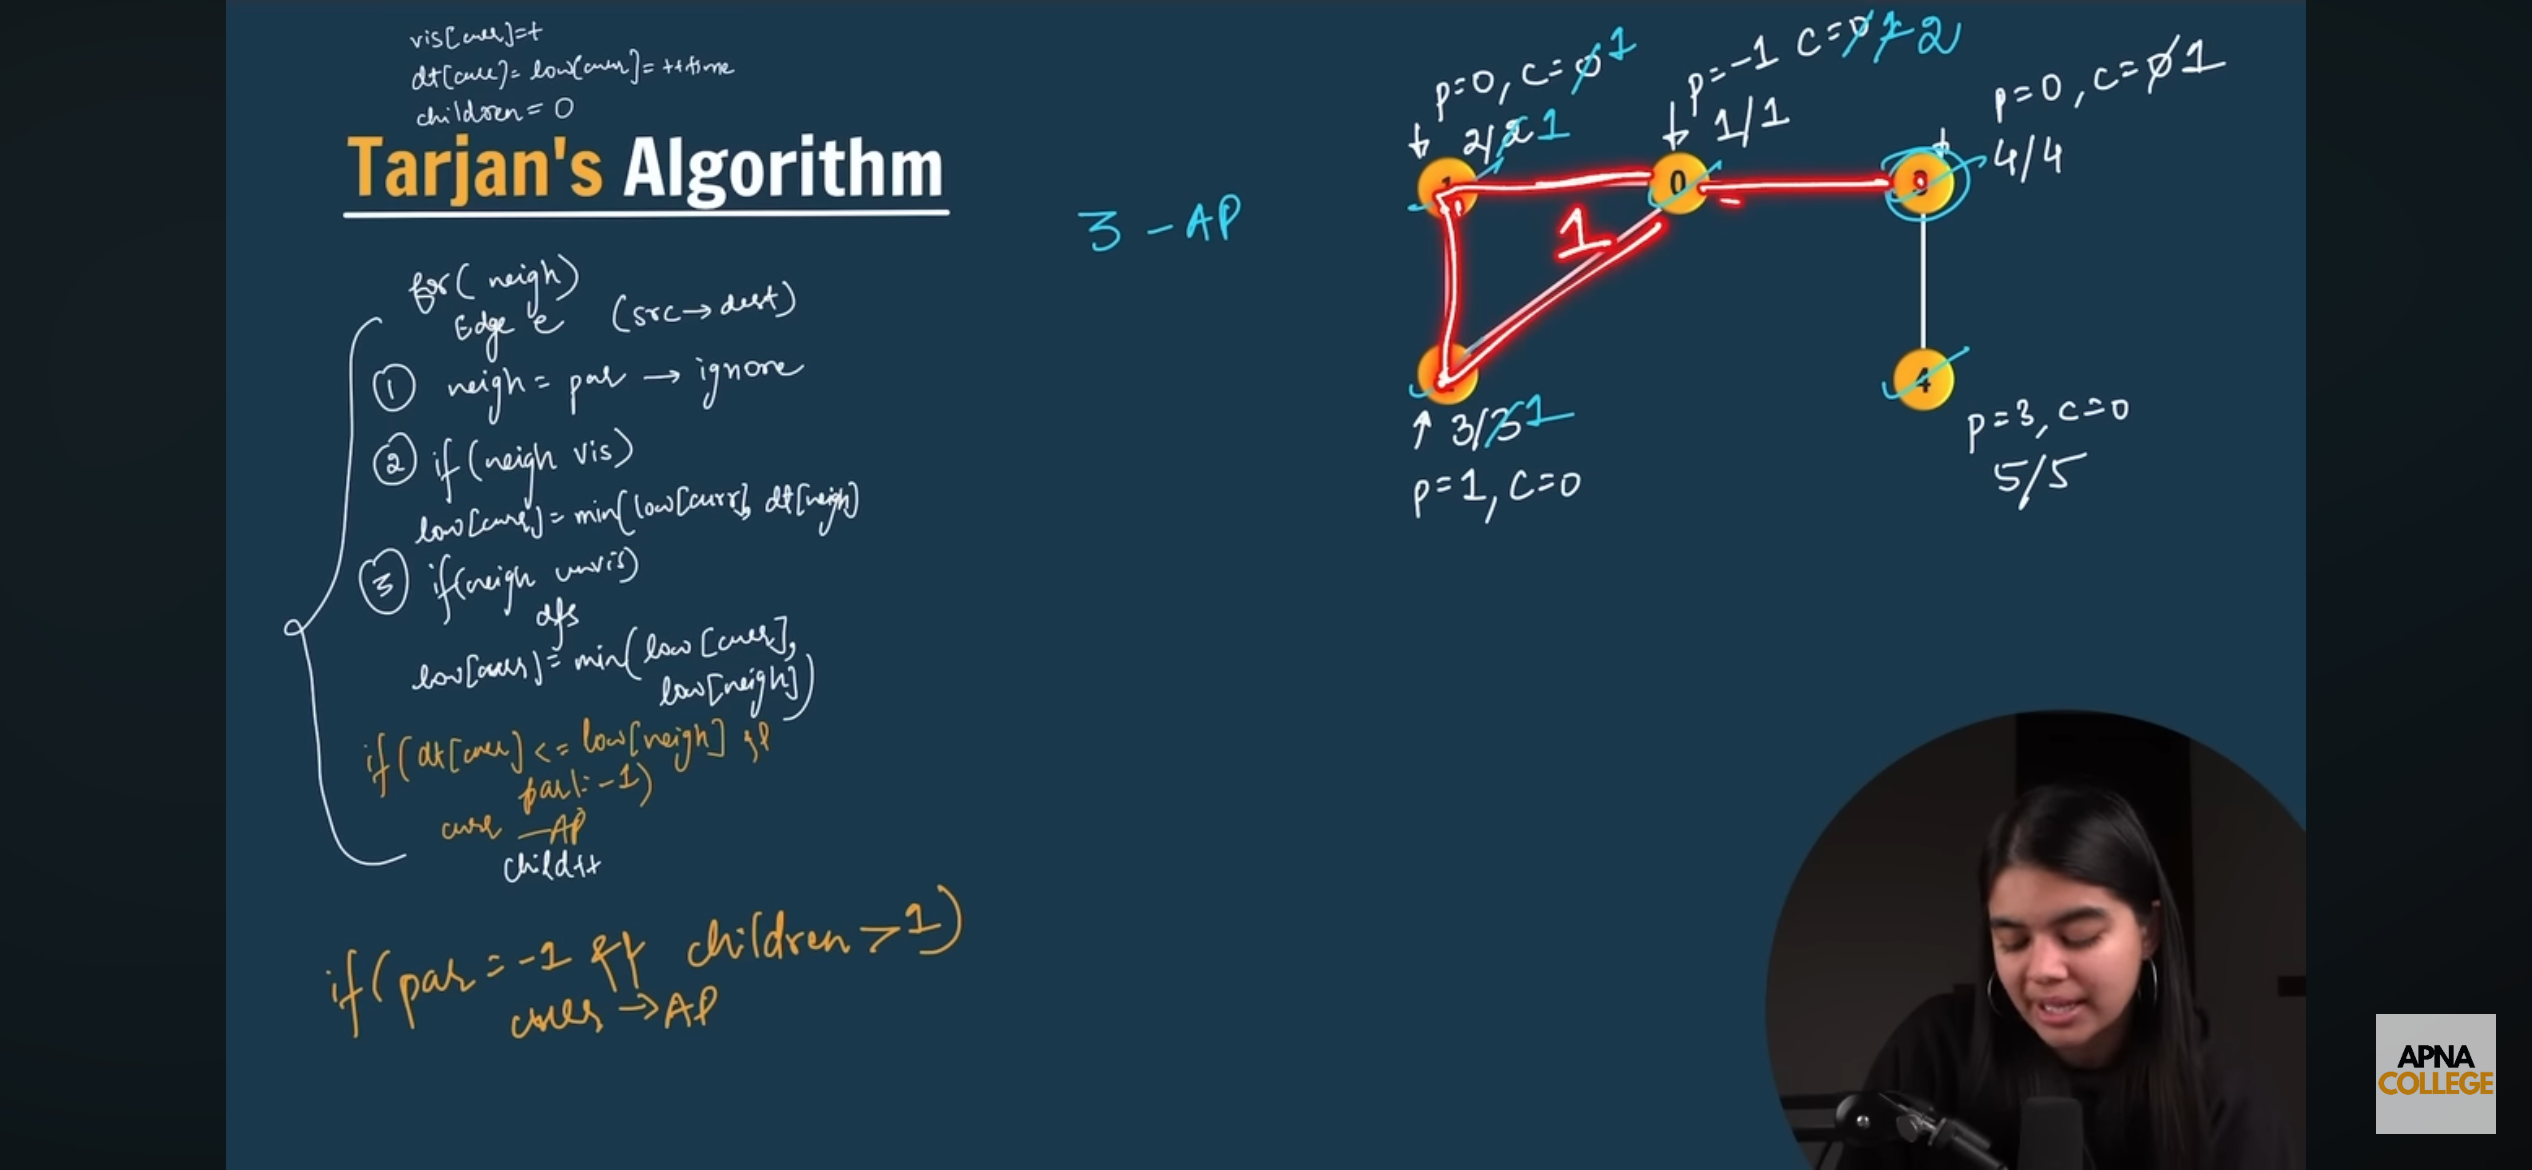 vis[curr]=t
dt[curr]=low[curr]=++time
children=0
Tarjan's Algorithm
for(neigh)
Edge e (src→dest)
① neigh=par → ignore
② if(neigh vis)
low[curr]=min(low[curr], dt[neigh]
③ if(neigh unvis)
dfs
low[curr]=min(low[curr],
low[neigh])
if(dt[curr]<=low[neigh] &&
par!=-1)
curr -AP
child++
if(par=-1 && children>1)
curr→AP
3-AP
p=0, c=0 1
2/2 1
p=-1 c=0 1 2
1/1
p=0, c=0 1
4/4
1
0
3
1
4
3/3 1
p=1, c=0
p=3, c=0
5/5
APNA
COLLEGE